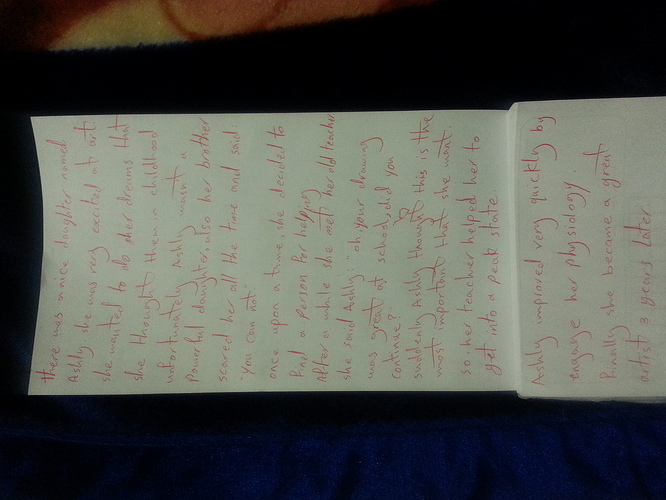 there was a nice daughter named
Ashly she was very excited at art.
she wanted to do her dreams that
she thought them in childhood
unfortunately Ashly wasn't a
powerful daughter, also her brother
scared her all the time and said:
"you can not"
once upon a time, she decided to
find a person for helping
After a while she met her old teacher
she said Ashly: "oh your drawing
was great at school, did you
continue?
suddenly Ashly thought this is the
most important that she want.
so, her teacher helped her to
get into a peak state.
Ashly improred very quickly by
engage her physiology.
finally she became a great
artist 3 years later.